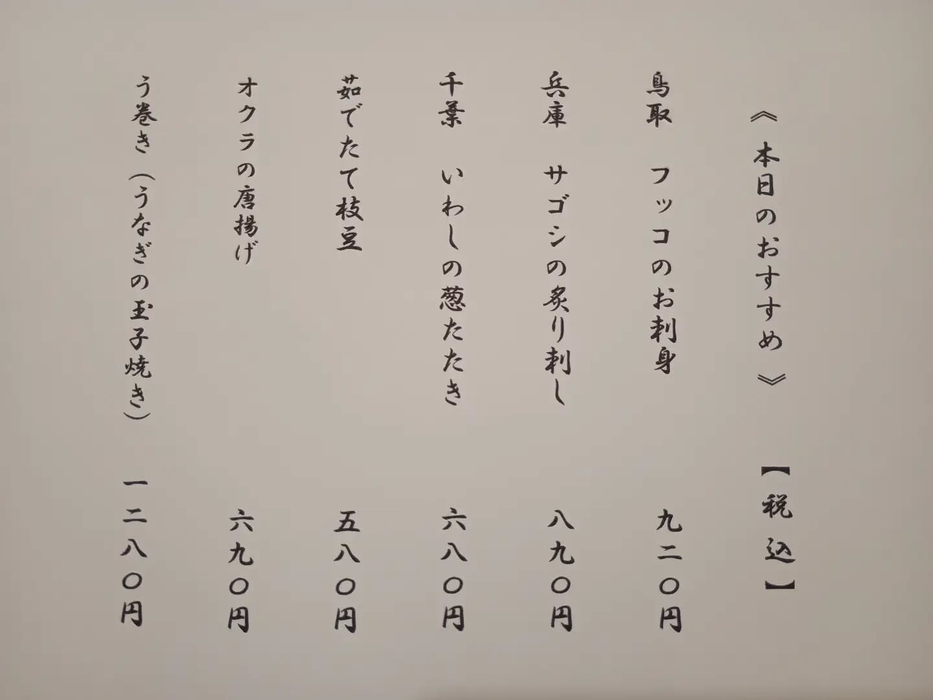 《本日のおすすめ》【税込】
鳥取　フッコのお刺身　九二〇円
兵庫　サゴシの炙り刺し　八九〇円
千葉　いわしの葱たたき　六八〇円
茹でたて枝豆　五八〇円
オクラの唐揚げ　六九〇円
う巻き（うなぎの玉子焼き）　一二八〇円